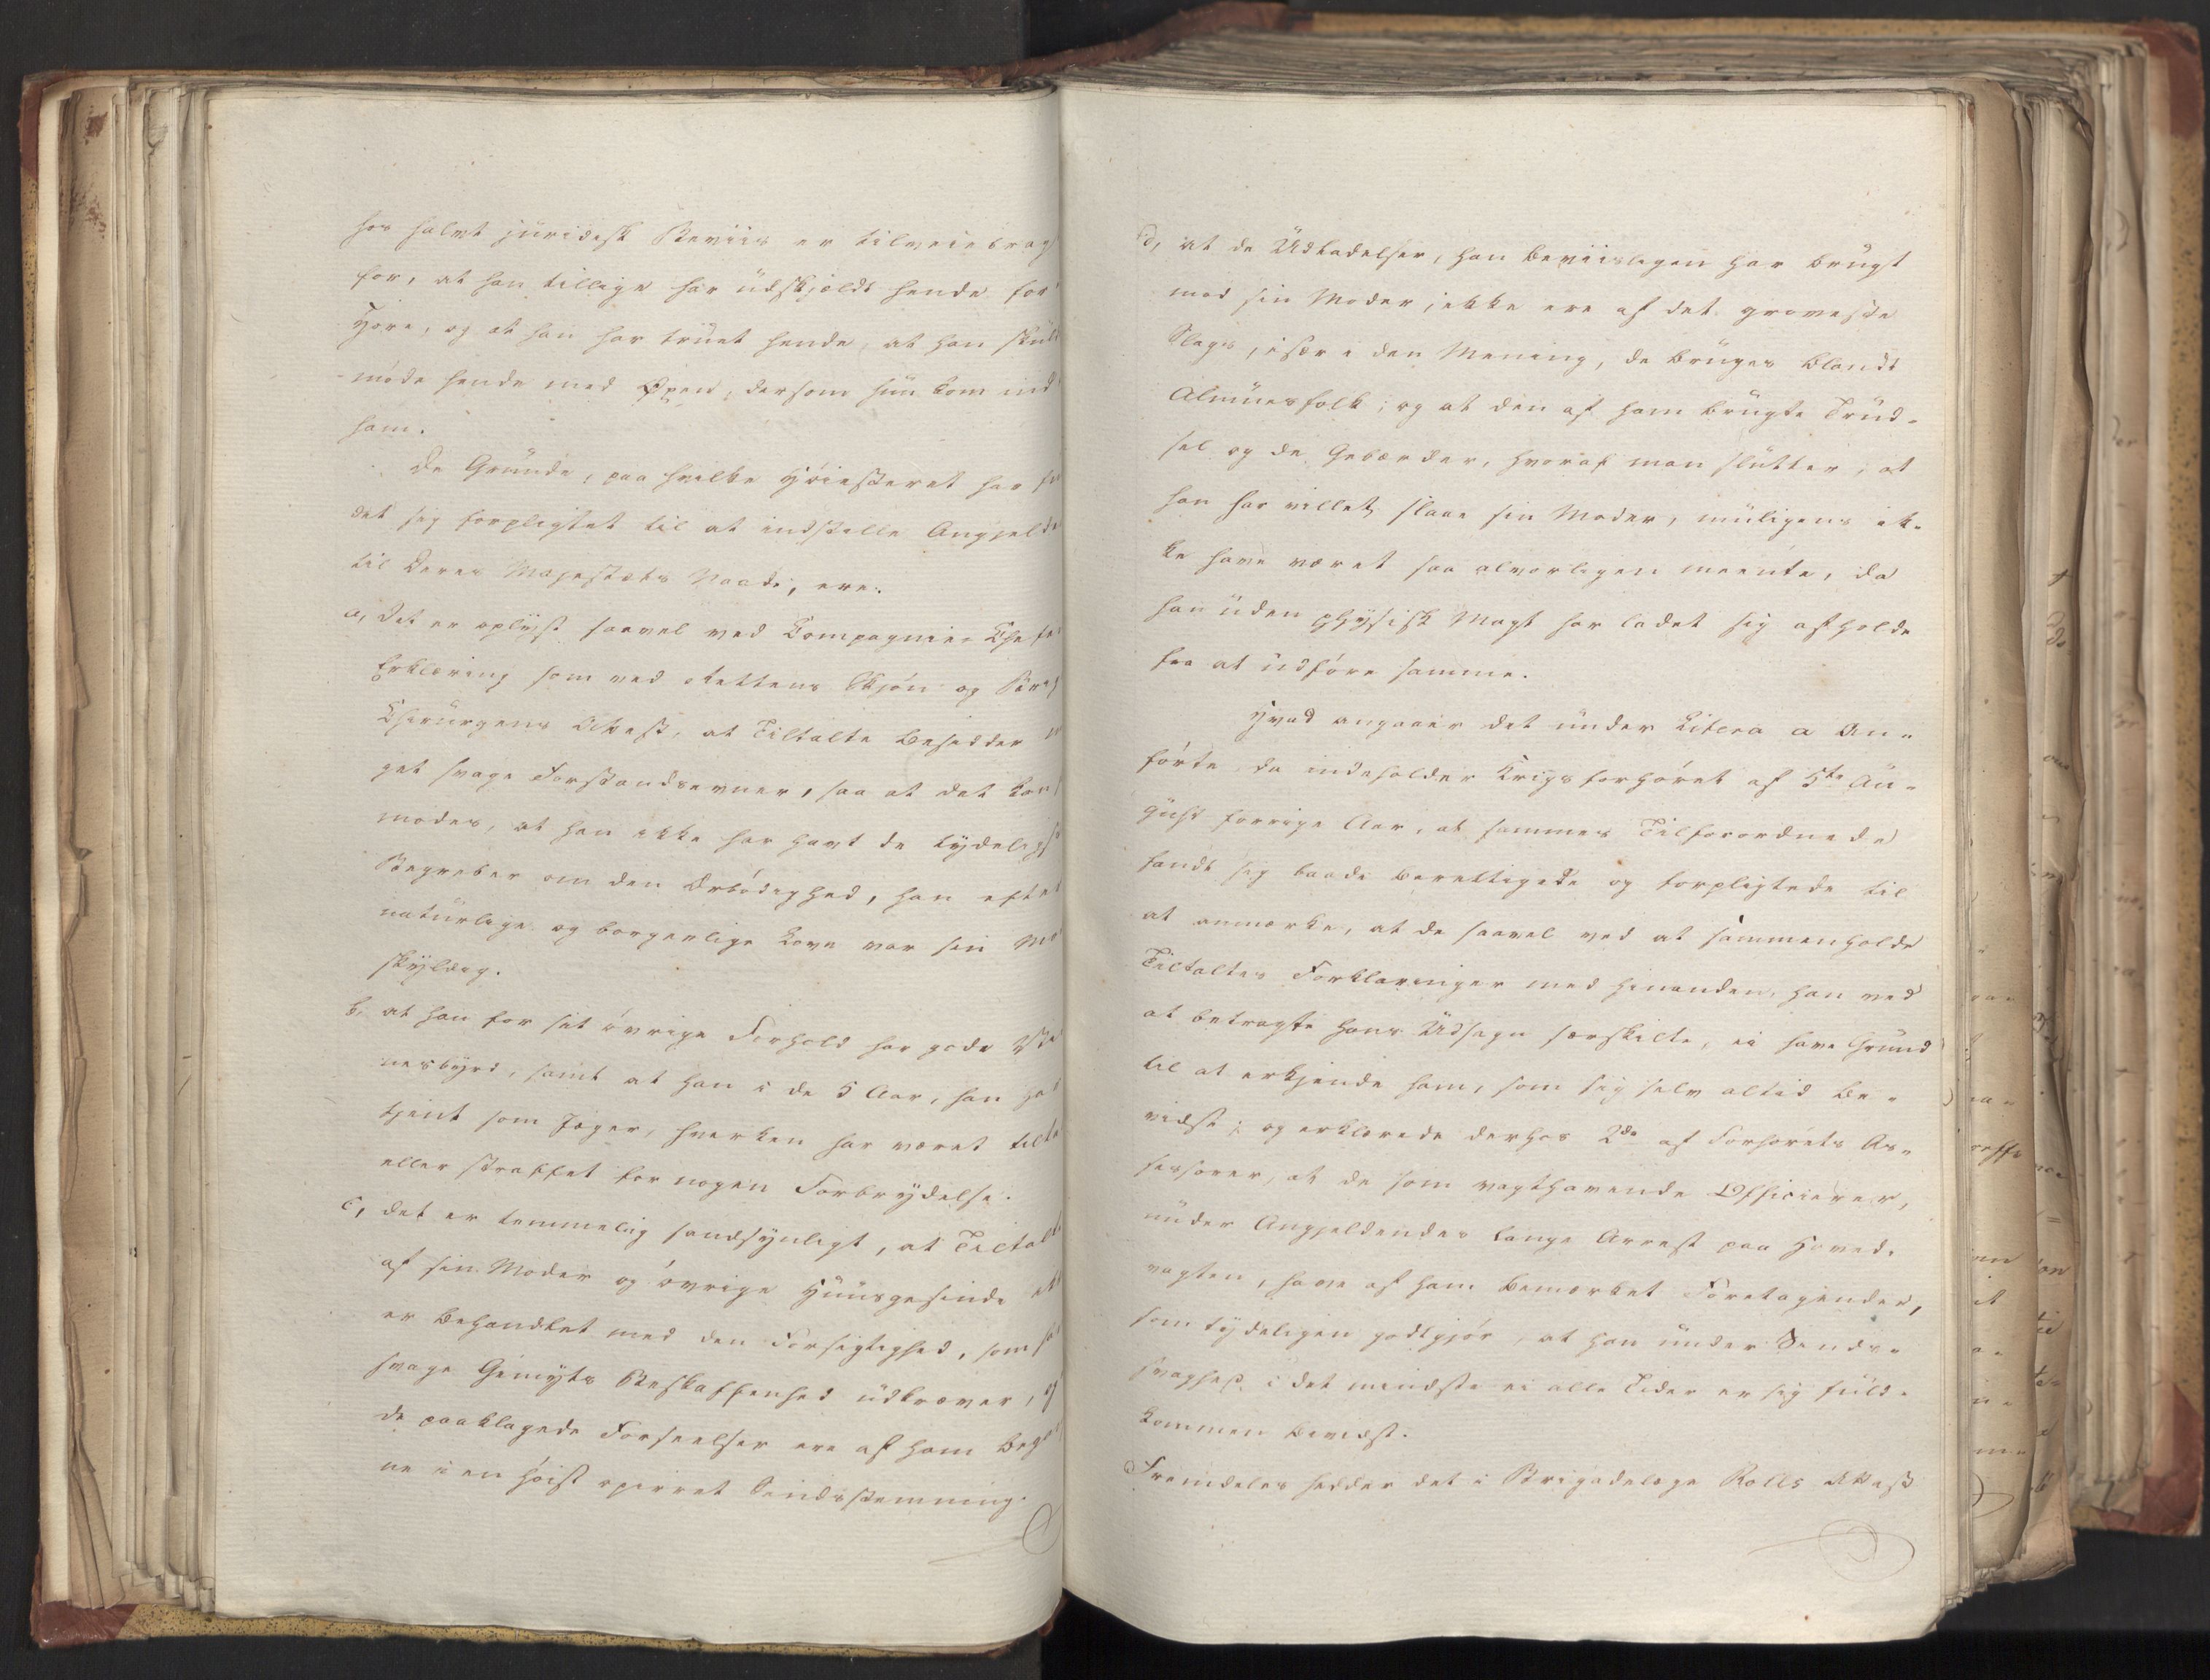 hos halvt juridisk Beviis er tilveiebrag
for, at han tillige har udskjældt hende for
Hore, og at han har truet hende, at han skul
møde hende med Øxen, dersom hun kom ind
ham.
De Grunde, paa hvilke Høiesteret har fun
det sig forpligtet til at indstille Angjelde
til Deres Majestæts Naade, ere:
a, Det er oplyst saavel ved Compagnie-Chefe
Erklæring som ved Rettens Skjøn og
Chirurgens Attest, at Tiltalte besidder
get svage Forstandsevner, saa at det kan
modes, at han ikke har havt de tydeligst
Begreber om den Ærbødighed, han efter
naturlige og borgerlige Love var sin Mo
skyldig.
b, at han for sit øvrige Forhold har gode Vid
nesbyrd, samt at han i de 5 Aar, han ha
tjent som Jæger, hverken har været tilta
eller straffet for nogen Forbrydelse.
c, det er temmelig sandsynligt, at Tiltalte
af sin Moder og øvrige Huusgesinde ikk
er behandlet med den Forsigtighed, som
svage Gemyts Beskaffenhed udkræver, og
de paaklagede Forseelser ere af ham beg
ne i en høist opirret Sindsstemning.
d, at de Udladelser, han beviisligen har brugt
mod sin Moder, ikke ere af det groveste
Slags, især i den Mening, de bruges blandt
Almuesfolk; og at den af ham brugte Trud-
sel og de Gebærder, hvoraf man slutter, at
han har villet slaae sin Moder, muligens ik-
ke have været saa alvorligen meente, da
han uden physisk Magt har ladet sig afholde
fra at udføre samme.
Hvad angaaer det under Litera a An-
førte, da indeholder Krigsforhøret af 5te Au-
gust forrige Aar, at sammes Tilforordnede
fandt sig baade berettigede og forpligtede til
at anmærke, at de saavel ved at sammenholde
Tiltaltes Forklaringer med hinanden, han ved
at betragte hans Udsagn særskilte, ei have Grund
til at erkjende ham, som sig selv altid be-
vidst; og erklærede derhos 2de af Forhørets As-
sessorer, at de som vagthavende Officierer,
under Angjeldendes lange Arrest paa Hoved-
vagten, have af ham bemærket Foretagender,
som tydeligen godtgjør, at han under Sinds-
svaghed i det mindste ei alle Tider er sig fuld-
kommen bevidst.
Fremdeles hedder det i Brigadelæge Rolls Attest